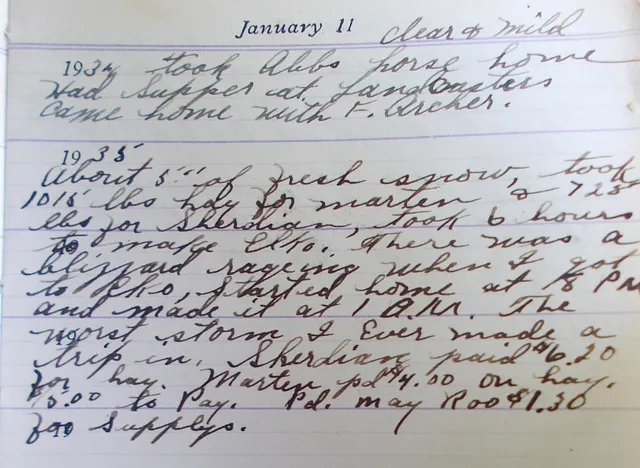 January 11 clear & mild
1934 took Abbs horse home
Had Supper at Landcasters
came home with F. Archer.
1935
About 5" of fresh snow, took
1015 lbs hay for marten & 725
lbs for Sherdian, took 6 hours
to make Elko. There was a
blizzard rageing when I got
to Elko, started home at 8 PM
and made it at 1 A.M. The
worst storm I Ever made a
trip in. Sherdian paid $6.20
for hay. Marten pd $4.00 on hay.
5.00 to Pay. Pd. may Roo $1.30
for Supplys.